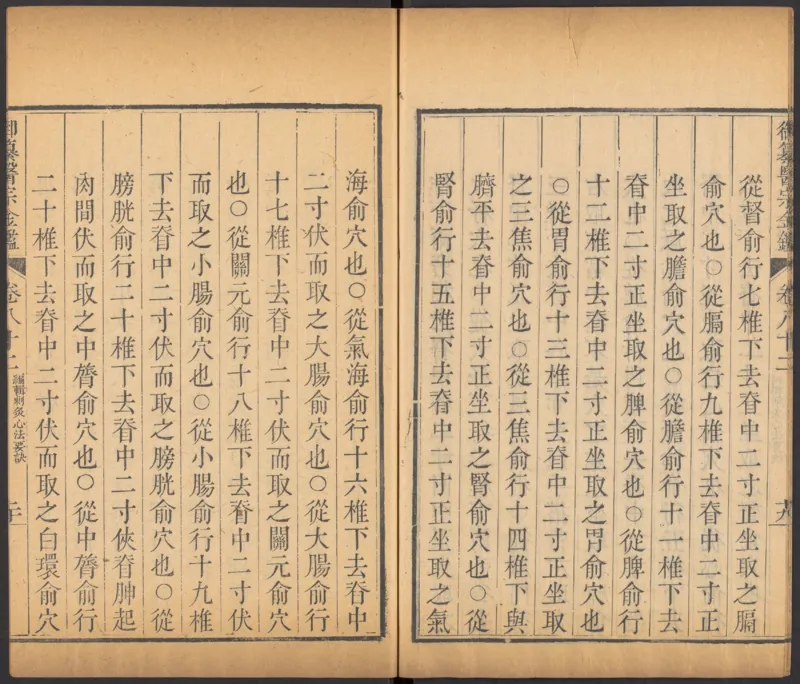 御纂醫宗金鑑
卷八十二
從督俞行七椎下去脊中二寸正坐取之膈
俞穴也○從膈俞行九椎下去脊中二寸正
坐取之肝俞穴也○從膽俞行十一椎下去
脊中二寸正坐取之脾俞穴也○從脾俞行
十二椎下去脊中二寸正坐取之胃俞穴也
○從胃俞行十三椎下去脊中二寸正坐取
之三焦俞穴也○從三焦俞行十四椎下與
臍平去脊中二寸正坐取之腎俞穴也○從
腎俞行十五椎下去脊中二寸正坐取之氣
海俞穴也○從氣海俞行十六椎下去脊中
二寸伏而取之大腸俞穴也○從大腸俞行
十七椎下去脊中二寸伏而取之關元俞穴
也○從關元俞行十八椎下去脊中二寸伏
而取之小腸俞穴也○從小腸俞行十九椎
下去脊中二寸伏而取之膀胱俞穴也○從
膀胱俞行二十椎下去脊中二寸俠脊胂起
肉間伏而取之中膂俞穴也○從中膂俞行
二十椎下去脊中二寸伏而取之白環俞穴
御纂醫宗金鑑
卷八十二
編輯刺灸心法要訣